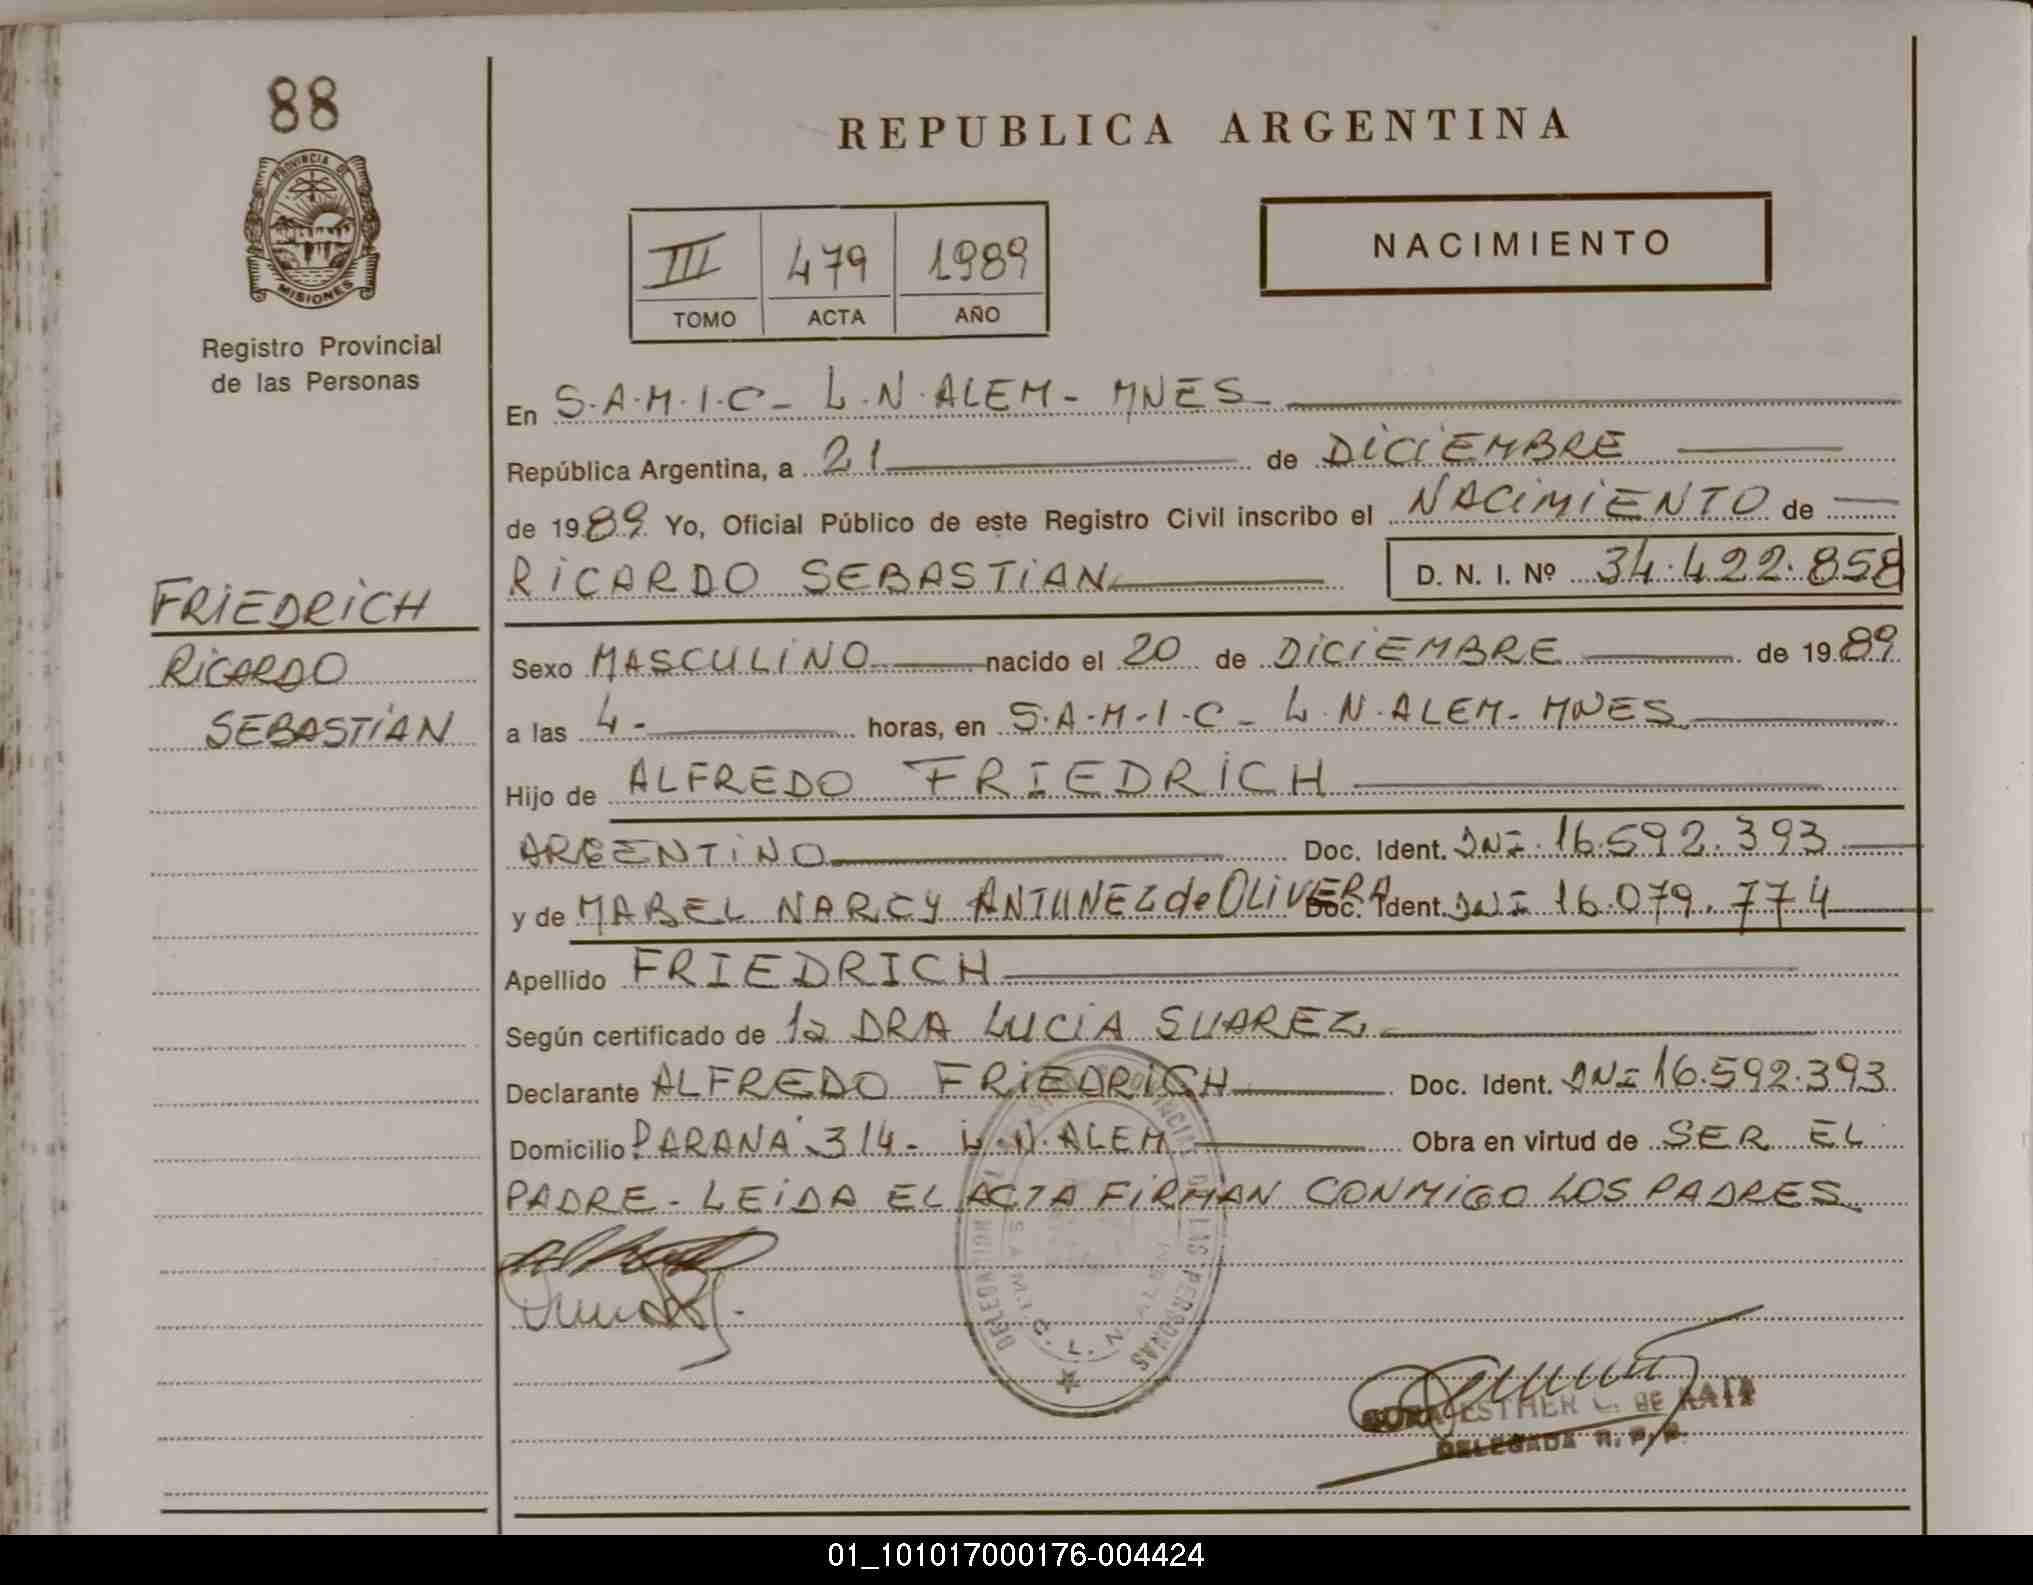 88
PROVINCIA DE
MISIONES
Registro Provincial
de las Personas
FRIEDRICH
RICARDO
SEBASTIAN
REPUBLICA ARGENTINA
III 479 1989
TOMO ACTA AÑO
NACIMIENTO
En S.A.M.I.C - L.N.ALEM - MNES
República Argentina, a 21 de DICIEMBRE
de 1989 Yo, Oficial Público de este Registro Civil inscribo el NACIMIENTO de
RICARDO SEBASTIAN D. N. I. Nº 34.422.858
Sexo MASCULINO nacido el 20 de DICIEMBRE de 1989
a las 4 - horas, en S.A.M.I.C - L.N.ALEM - MNES
Hijo de ALFREDO FRIEDRICH
ARGENTINO Doc. Ident. DNI 16.592.393
y de MABEL NARCY ANTUNEZ de OLIVERA Doc. Ident. DNI 16.079.774
Apellido FRIEDRICH
Según certificado de la DRA LUCIA SUAREZ
Declarante ALFREDO FRIEDRICH Doc. Ident. DNI 16.592.393
Domicilio PARANA 314 - L.N.ALEM Obra en virtud de SER EL
PADRE - LEIDA EL ACTA FIRMAN CONMIGO LOS PADRES
DE LAS PERSONAS
S.A.M.I.C. L. N. ALEM
ESTHER L. DE
DELEGADA R. P. P.
01_101017000176-004424